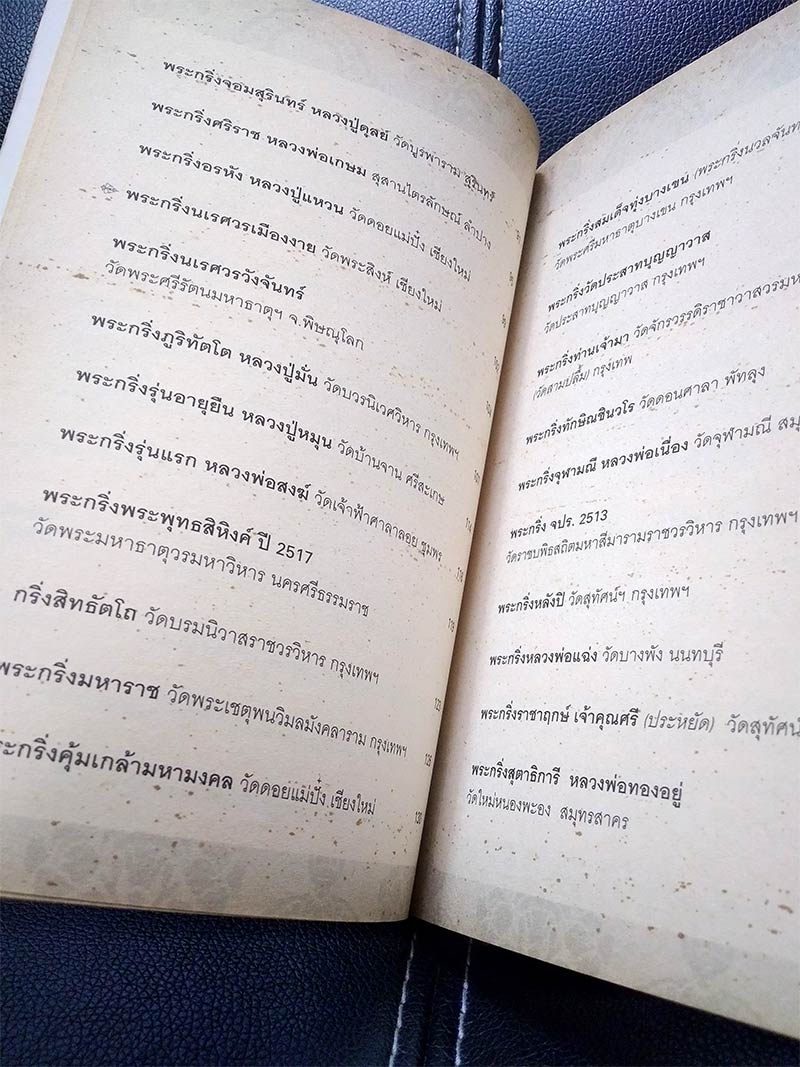 พระกริ่งจอมสุรินทร์ หลวงปู่ดุลย์ วัดบูรพาราม สุรินทร์
พระกริ่งศรีราช หลวงพ่อเกษม สุสานไตรลักษณ์ ลำปาง
พระกริ่งอรหัง หลวงปู่แหวน วัดดอยแม่ปั๋ง เชียงใหม่
พระกริ่งนเรศวรเมืองงาย วัดพระสิงห์ เชียงใหม่
พระกริ่งนเรศวรวังจันทร์
วัดพระศรีรัตนมหาธาตุฯ จ.พิษณุโลก
พระกริ่งภูริทัตโต หลวงปู่มั่น วัดบวรนิเวศวิหาร กรุงเทพฯ
พระกริ่งรุ่นอายุยืน หลวงปู่หมุน วัดบ้านจาน ศรีสะเกษ
พระกริ่งรุ่นแรก หลวงพ่อสงฆ์ วัดเจ้าฟ้าศาลาลอย ชุมพร
พระกริ่งพระพุทธสิหิงค์ ปี 2517
วัดพระมหาธาตุวรมหาวิหาร นครศรีธรรมราช
กริ่งสิทธัตโถ วัดบรมนิวาสราชวรวิหาร กรุงเทพฯ
พระกริ่งมหาราช วัดพระเชตุพนวิมลมังคลาราม กรุงเทพฯ 126
ะกริ่งคุ้มเกล้ามหามงคล วัดดอยแม่ปั๋ง เชียงใหม่
พระกริ่งสมเด็จทุ่งบางเขน (พระกริ่งนวลจันท
วัดพระศรีมหาธาตุบางเขน กรุงเทพฯ
พระกริ่งวัดประสาทบุญญาวาส
วัดประสาทบุญญาวาส กรุงเทพฯ
พระกริ่งท่านเจ้ามา วัดจักรวรรดิราชาวาสวรมห
(วัดสามปลื้ม) กรุงเทพ
พระกริ่งทักษิณชินวโร วัดดอนศาลา พัทลุง
พระกริ่งจุฬามณี หลวงพ่อเนื่อง วัดจุฬามณี สมุ
พระกริ่ง จปร. 2513
วัดราชบพิธสถิตมหาสีมารามราชวรวิหาร กรุงเทพฯ
พระกริ่งหลังปิ วัดสุทัศน์ฯ กรุงเทพฯ
พระกริ่งหลวงพ่อแฉ่ง วัดบางพัง นนทบุรี
พระกริ่งราชาฤกษ์ เจ้าคุณศรี (ประหยัด) วัดสุทัศน์
พระกริ่งสุตาธิการี หลวงพ่อทองอยู่
วัดใหม่หนองพะอง สมุทรสาคร